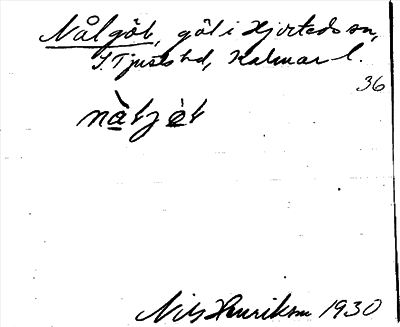 Nålgöl, göl i Hjorteds sn,
S. Tjusts hd, Kalmar l.
36
Nils Henrikson 1930